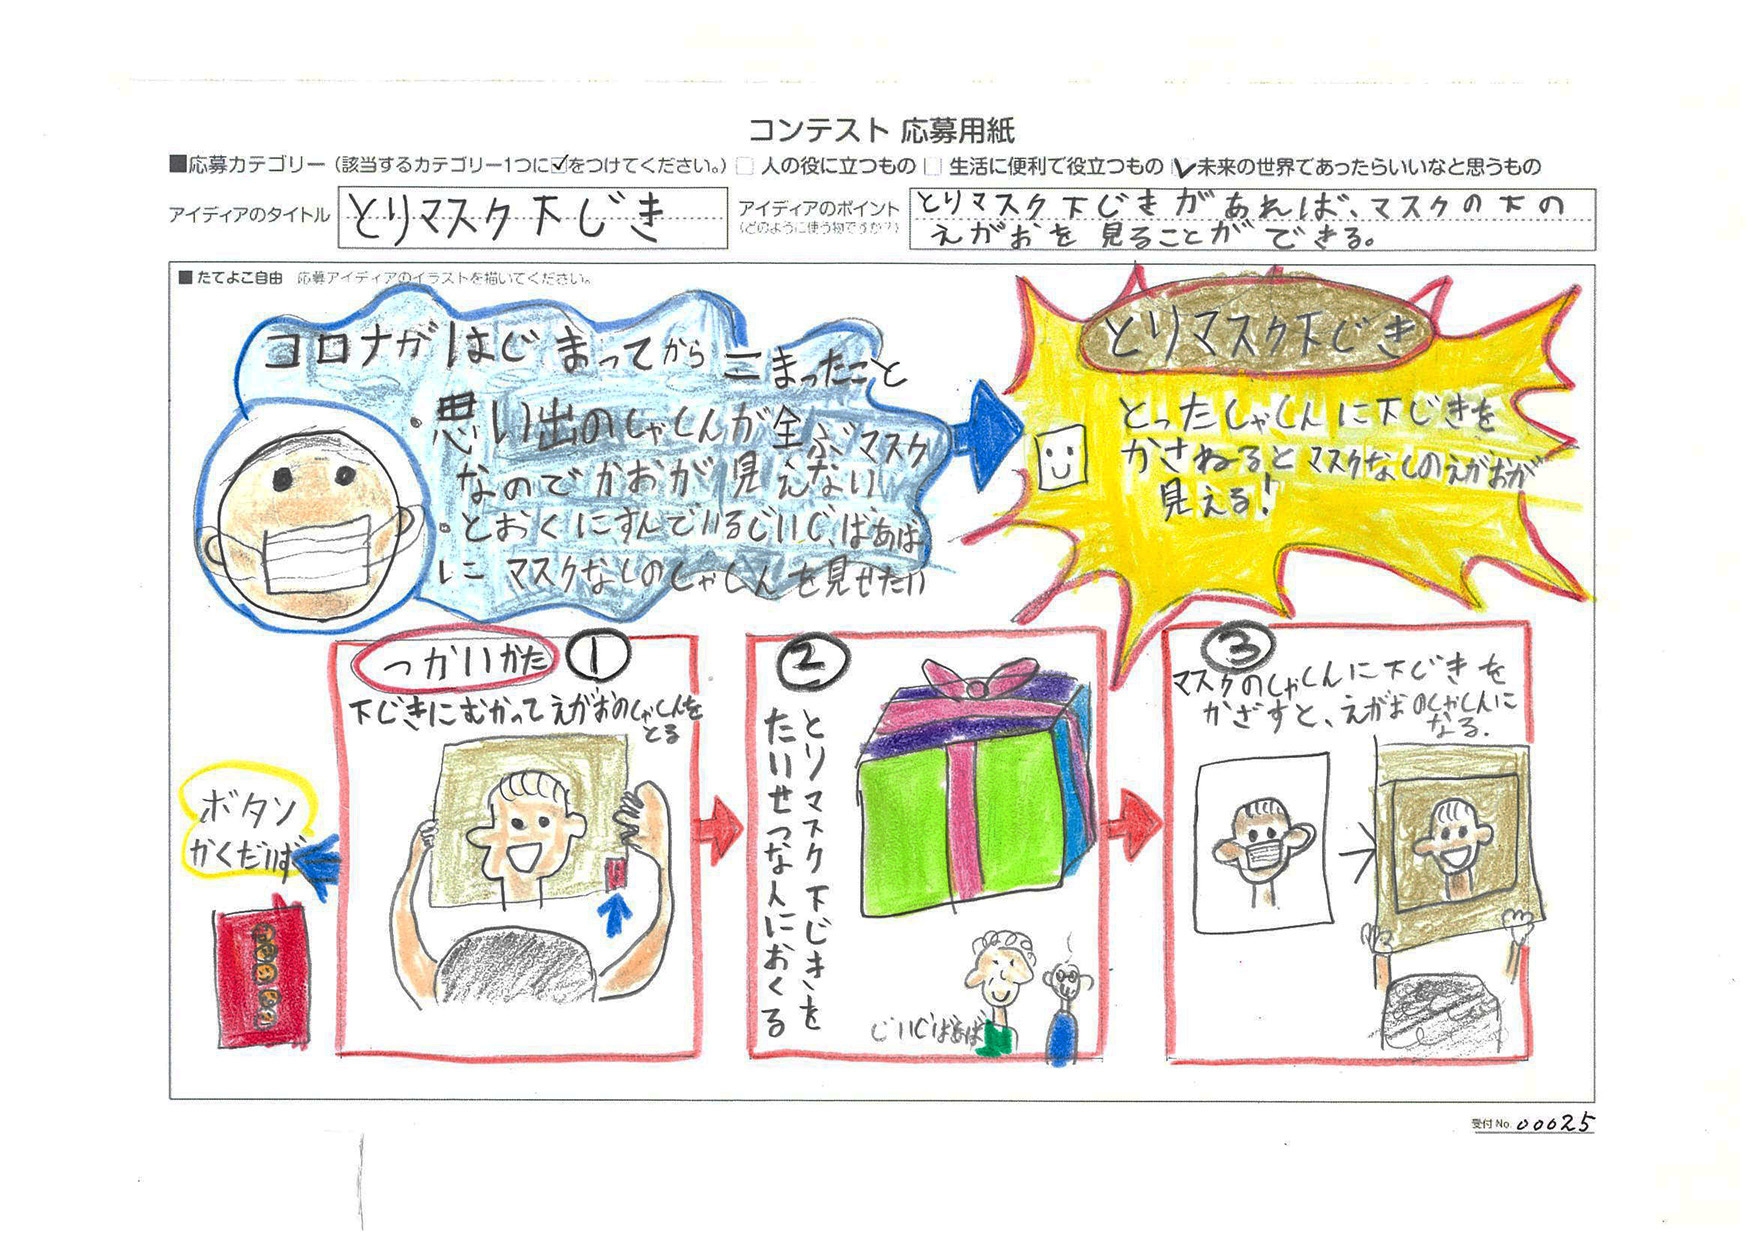 コンテスト 応募用紙
■応募カテゴリー（該当するカテゴリー1つに☑をつけてください。）□ 人の役に立つもの □ 生活に便利で役立つもの ☑ 未来の世界であったらいいなと思うもの
アイディアのタイトル
とりマスク下じき
アイディアのポイント
（どのように使う物ですか？）
とりマスク下じきがあれば、マスクの下の
えがおを見ることができる。
■ たてよこ自由 応募アイディアのイラストを描いてください。
コロナがはじまってからこまったこと
・思い出のしゃしんが全ぶマスク
なのでかおが見えない
・とおくにすんでいるじいじ、ばあば
に マスクなしのしゃしんを見せたい
とりマスク下じき
とったしゃしんに下じきを
かさねるとマスクなしのえがおが
見える!
つかいかた ①
下じきにむかってえがおのしゃしんを
とる
ボタン
かくだいず
②
とりマスク下じきを
たいせつな人におくる
じいじばあば
③
マスクのしゃしんに下じきを
かざすと、えがおのしゃしんに
なる.
受付No. 00025